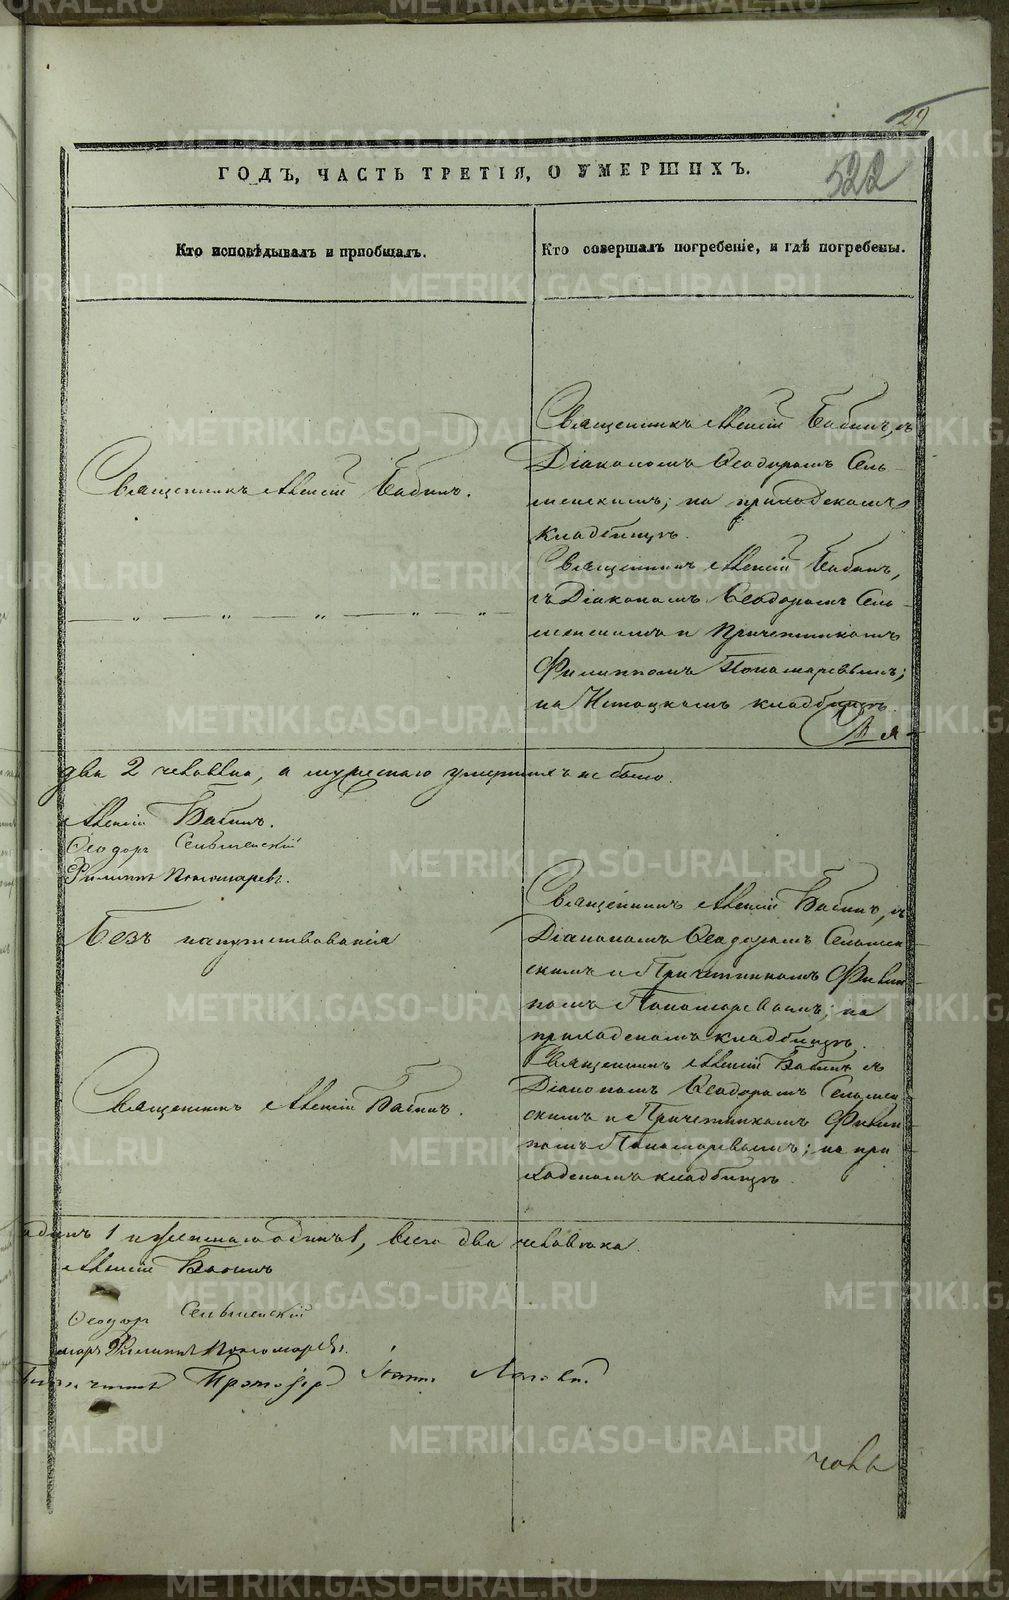 29
522
ГОДЪ, ЧАСТЬ ТРЕТІЯ, О УМЕРШИХЪ.
Кто исповѣдывалъ и пріобщалъ.
Кто совершалъ погребеніе, и гдѣ погребены.
Священникъ Алексій Бабинъ.
Священникъ Алексій Бабинъ, съ
Діакономъ Ѳеодоромъ Сель-
менскимъ; на приходскомъ
кладбищѣ.
Священникъ Алексій Бабинъ,
съ Діакономъ Ѳеодоромъ Сель-
менскимъ и Причетникомъ
Филиппомъ Пономаревымъ;
на кладбищѣ.
два 2 человѣка, а мужескаго умершихъ не было.
Алексій Бабинъ.
Ѳеодоръ Сельменскій
Филиппъ Пономаревъ.
Безъ напутствованія
Священникъ Алексій Бабинъ, съ
Діакономъ Ѳеодоромъ Сельмен-
скимъ и Причетникомъ Филип-
помъ Пономаревымъ; на
приходскомъ кладбищѣ.
Священникъ Алексій Бабинъ.
Священникъ Алексій Бабинъ съ
Діакономъ Ѳеодоромъ Сельмен-
скимъ и Причетникомъ Филип-
помъ Пономаревымъ; на при-
ходскомъ кладбищѣ.
одинъ 1 и женскаго одинъ 1, всего два человѣка.
Алексій Бабинъ
Ѳеодоръ Сельменскій
Филиппъ Пономаревъ.
METRIKI.GASO-URAL.RU